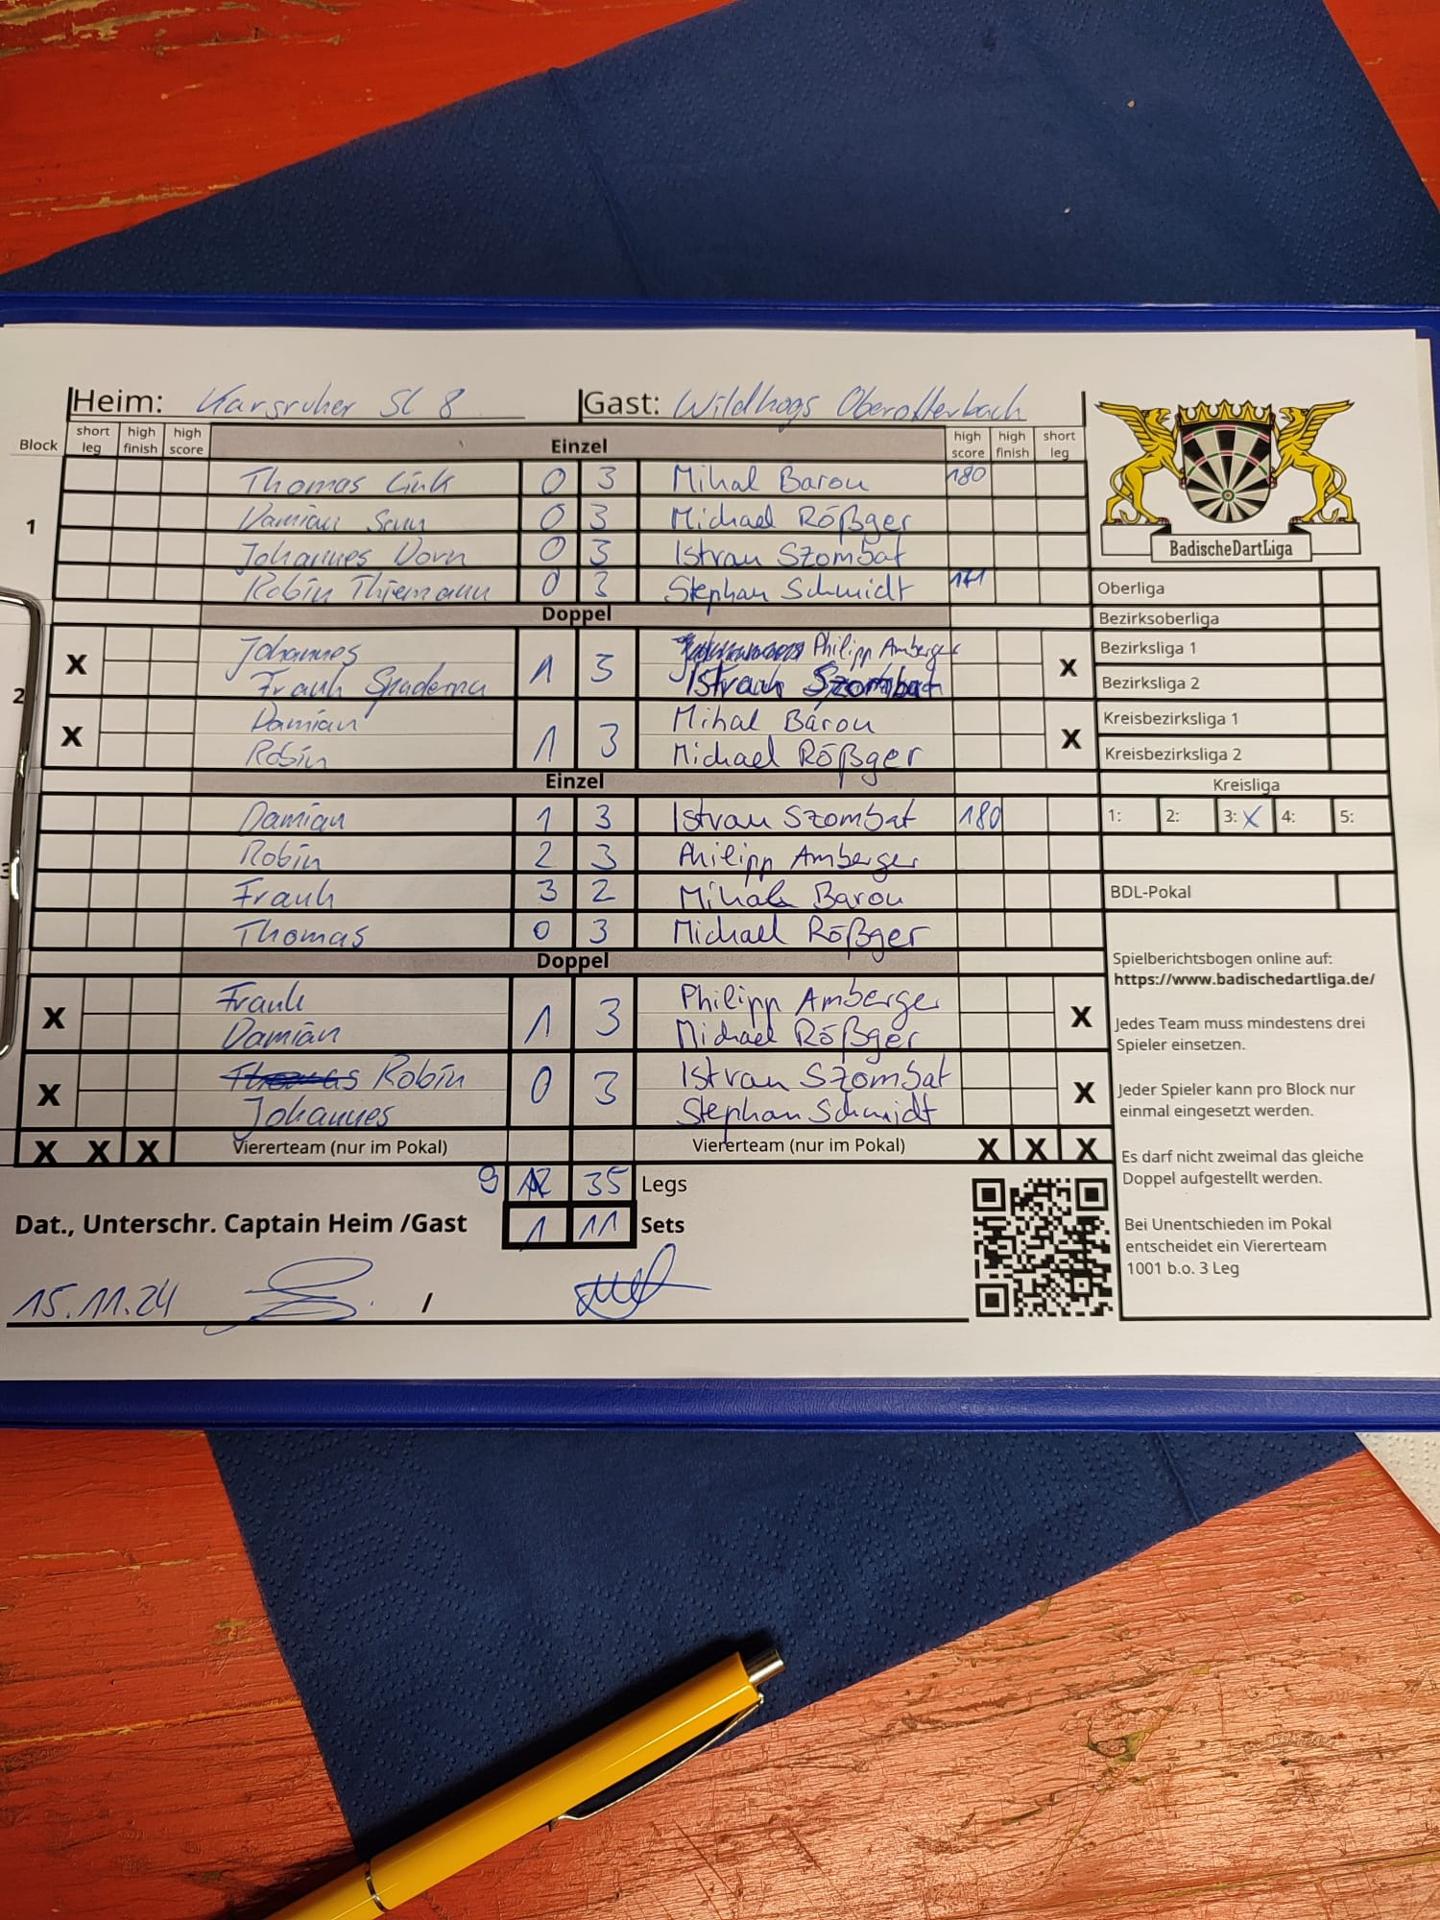 Heim: Karsruher SC 8 Gast: Wildhogs Oberotterbach
Block short leg high finish high score Einzel high score high finish short leg
1
Thomas Link 0 3 Mihal Barou 180
Damian 0 3 Michael Rößger
Johannes Dorn 0 3 Istvan Szombat
Robin Thiemann 0 3 Stephan Schmidt 171
Doppel
2
X Johannes 1 3 Philipp Amberger X
Frank Spadema Istvan Szombat
X Damian 1 3 Mihal Barou X
Robin Michael Rößger
Einzel
3
Damian 1 3 Istvan Szombat 180
Robin 2 3 Philipp Amberger
Frank 3 2 Mihal Barou
Thomas 0 3 Michael Rößger
Doppel
X Frank 1 3 Philipp Amberger X
Damian Michael Rößger
X Thomas Robin 0 3 Istvan Szombat X
Johannes Stephan Schmidt
X X X Viererteam (nur im Pokal) Viererteam (nur im Pokal) X X X
9 12 35 Legs
Dat., Unterschr. Captain Heim /Gast 1 11 Sets
15.11.24 /
BadischeDartLiga
Oberliga
Bezirksoberliga
Bezirksliga 1
Bezirksliga 2
Kreisbezirksliga 1
Kreisbezirksliga 2
Kreisliga
1: 2: 3: X 4: 5:
BDL-Pokal
Spielberichtsbogen online auf:
https://www.badischedartliga.de/
Jedes Team muss mindestens drei
Spieler einsetzen.
Jeder Spieler kann pro Block nur
einmal eingesetzt werden.
Es darf nicht zweimal das gleiche
Doppel aufgestellt werden.
Bei Unentschieden im Pokal
entscheidet ein Viererteam
1001 b.o. 3 Leg